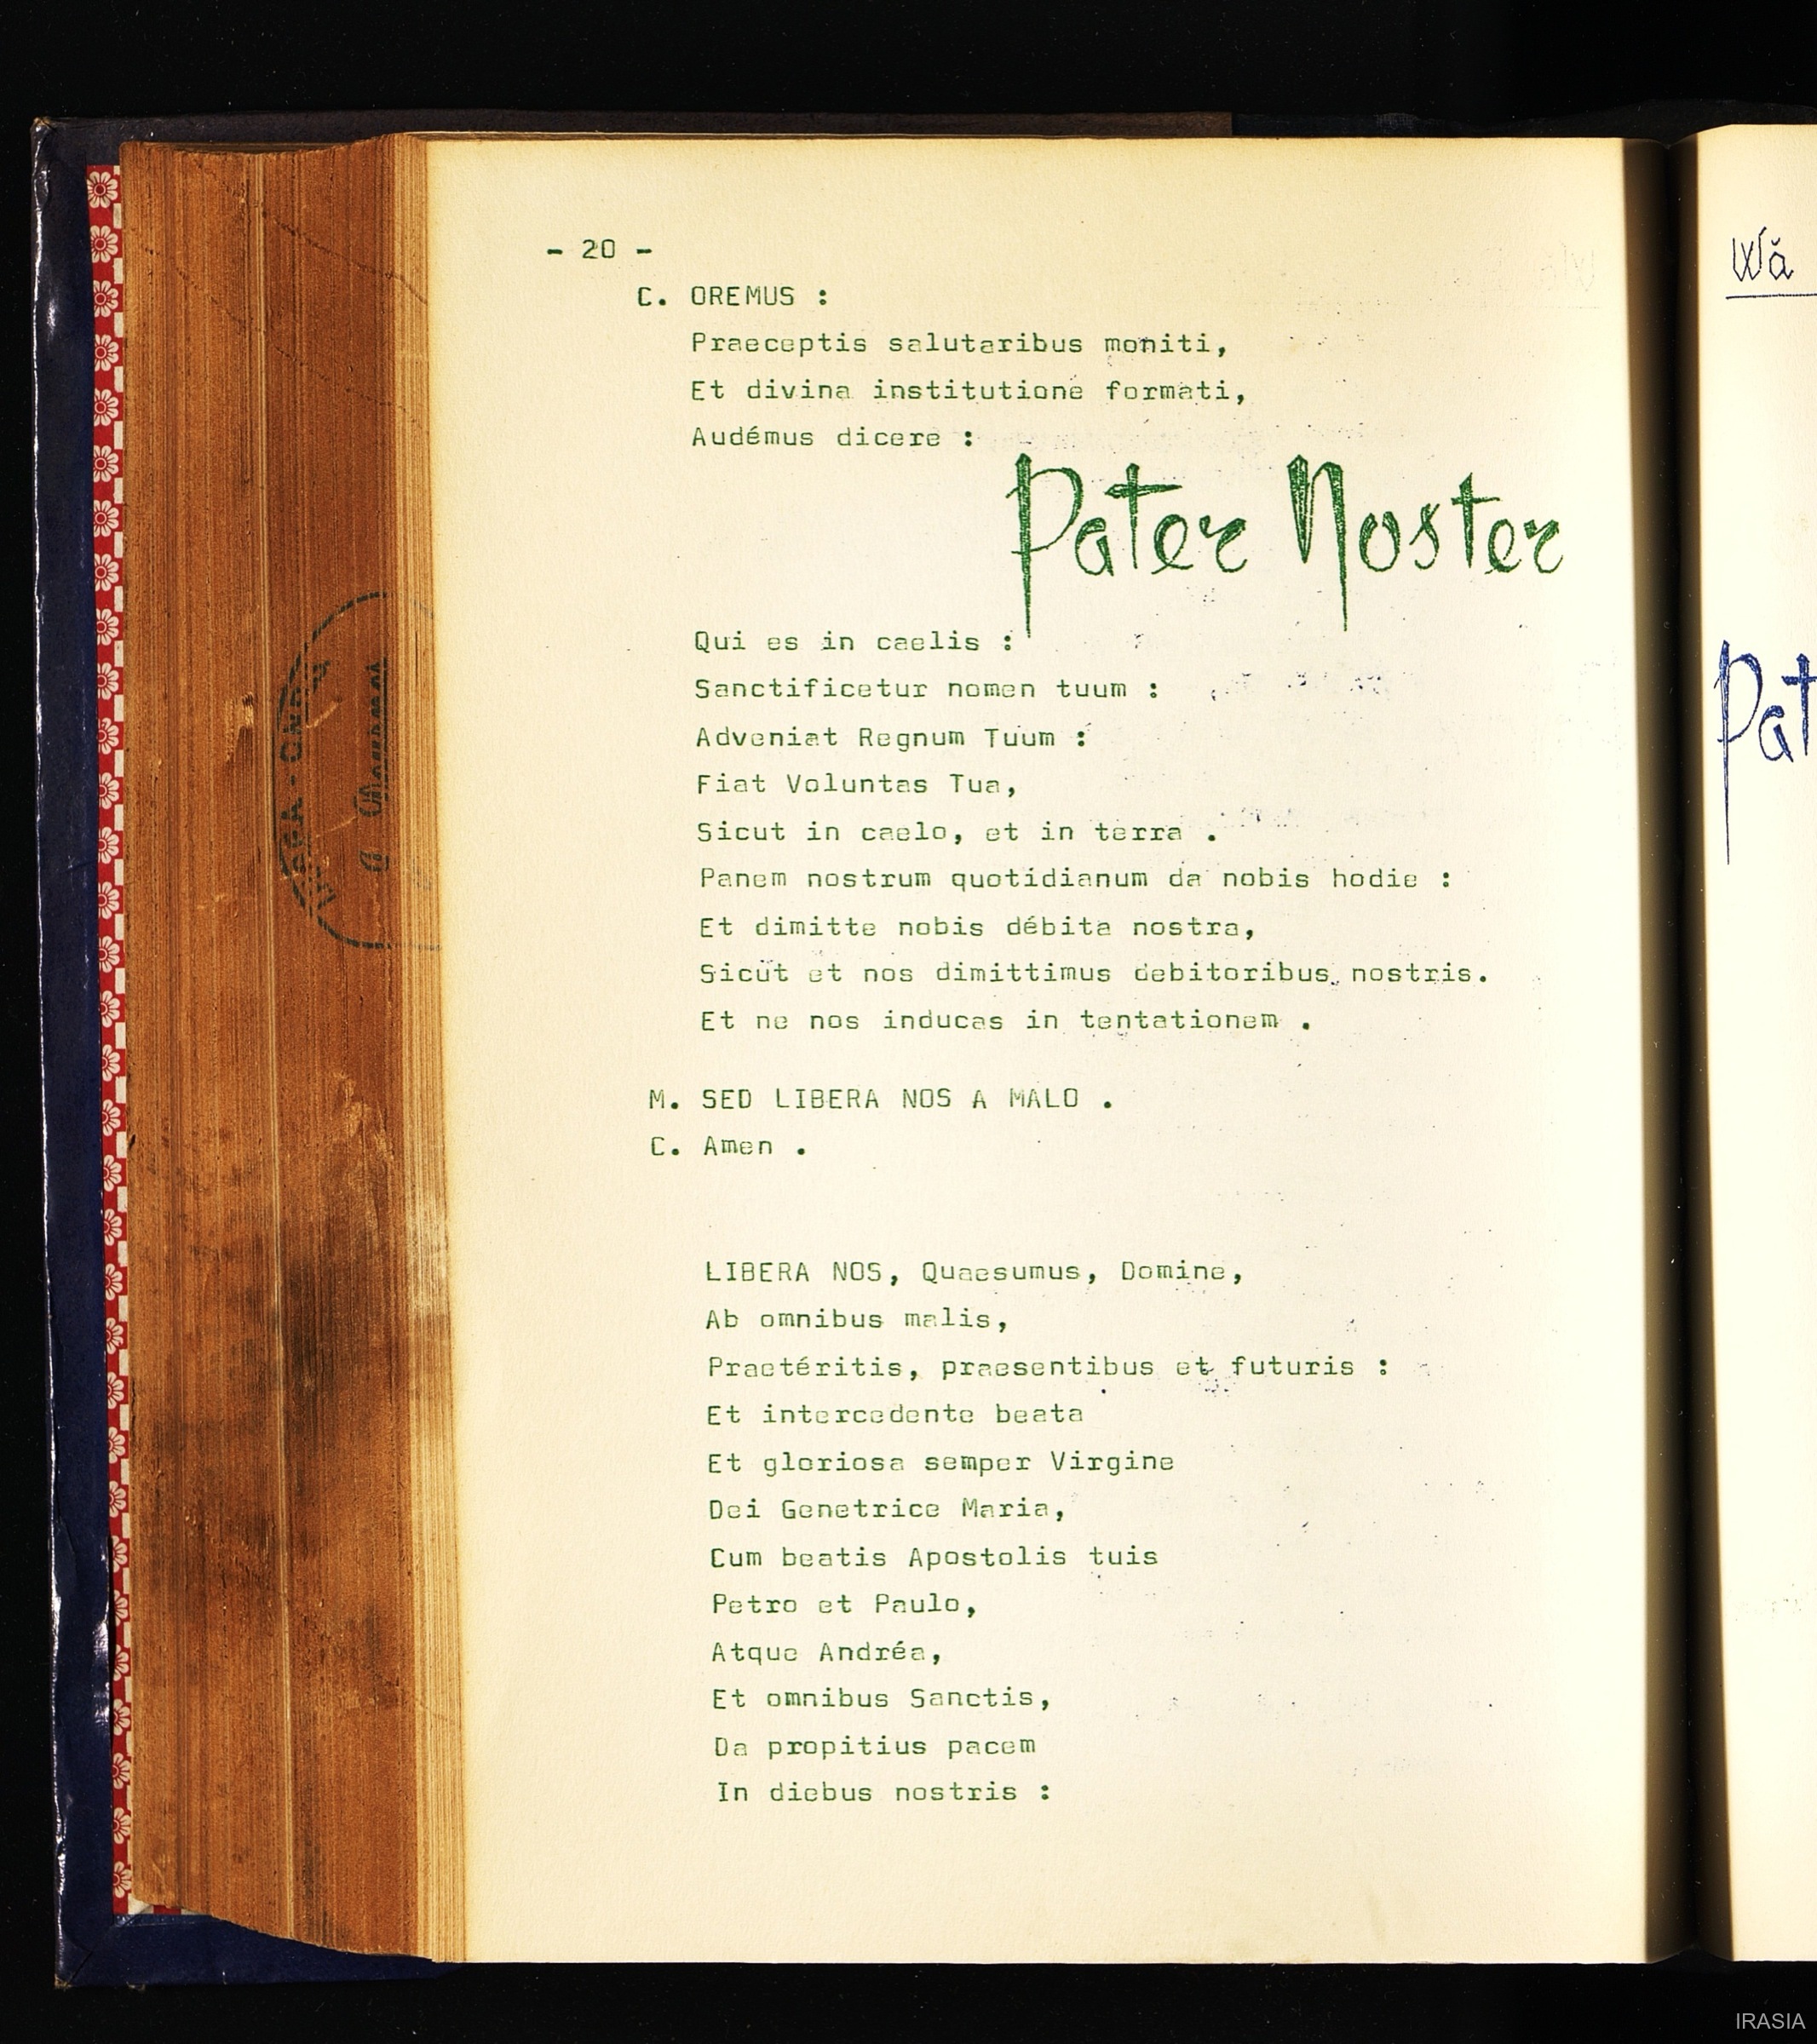 - 20 -
C. OREMUS :
Praeceptis salutaribus moniti,
Et divina institutione formati,
Audémus dicere :
Pater Noster
Qui es in caelis :
Sanctificetur nomen tuum :
Adveniat Regnum Tuum :
Fiat Voluntas Tua,
Sicut in caelo, et in terra .
Panem nostrum quotidianum da nobis hodie :
Et dimitte nobis débita nostra,
Sicut et nos dimittimus debitoribus nostris.
Et ne nos inducas in tentationem .
M. SED LIBERA NOS A MALO .
C. Amen .
LIBERA NOS, Quaesumus, Domine,
Ab omnibus malis,
Praetéritis, praesentibus et futuris :
Et intercedente beata
Et gloriosa semper Virgine
Dei Genetrice Maria,
Cum beatis Apostolis tuis
Petro et Paulo,
Atque Andréa,
Et omnibus Sanctis,
Da propitius pacem
In diebus nostris :
Wă
Pat
IRASIA